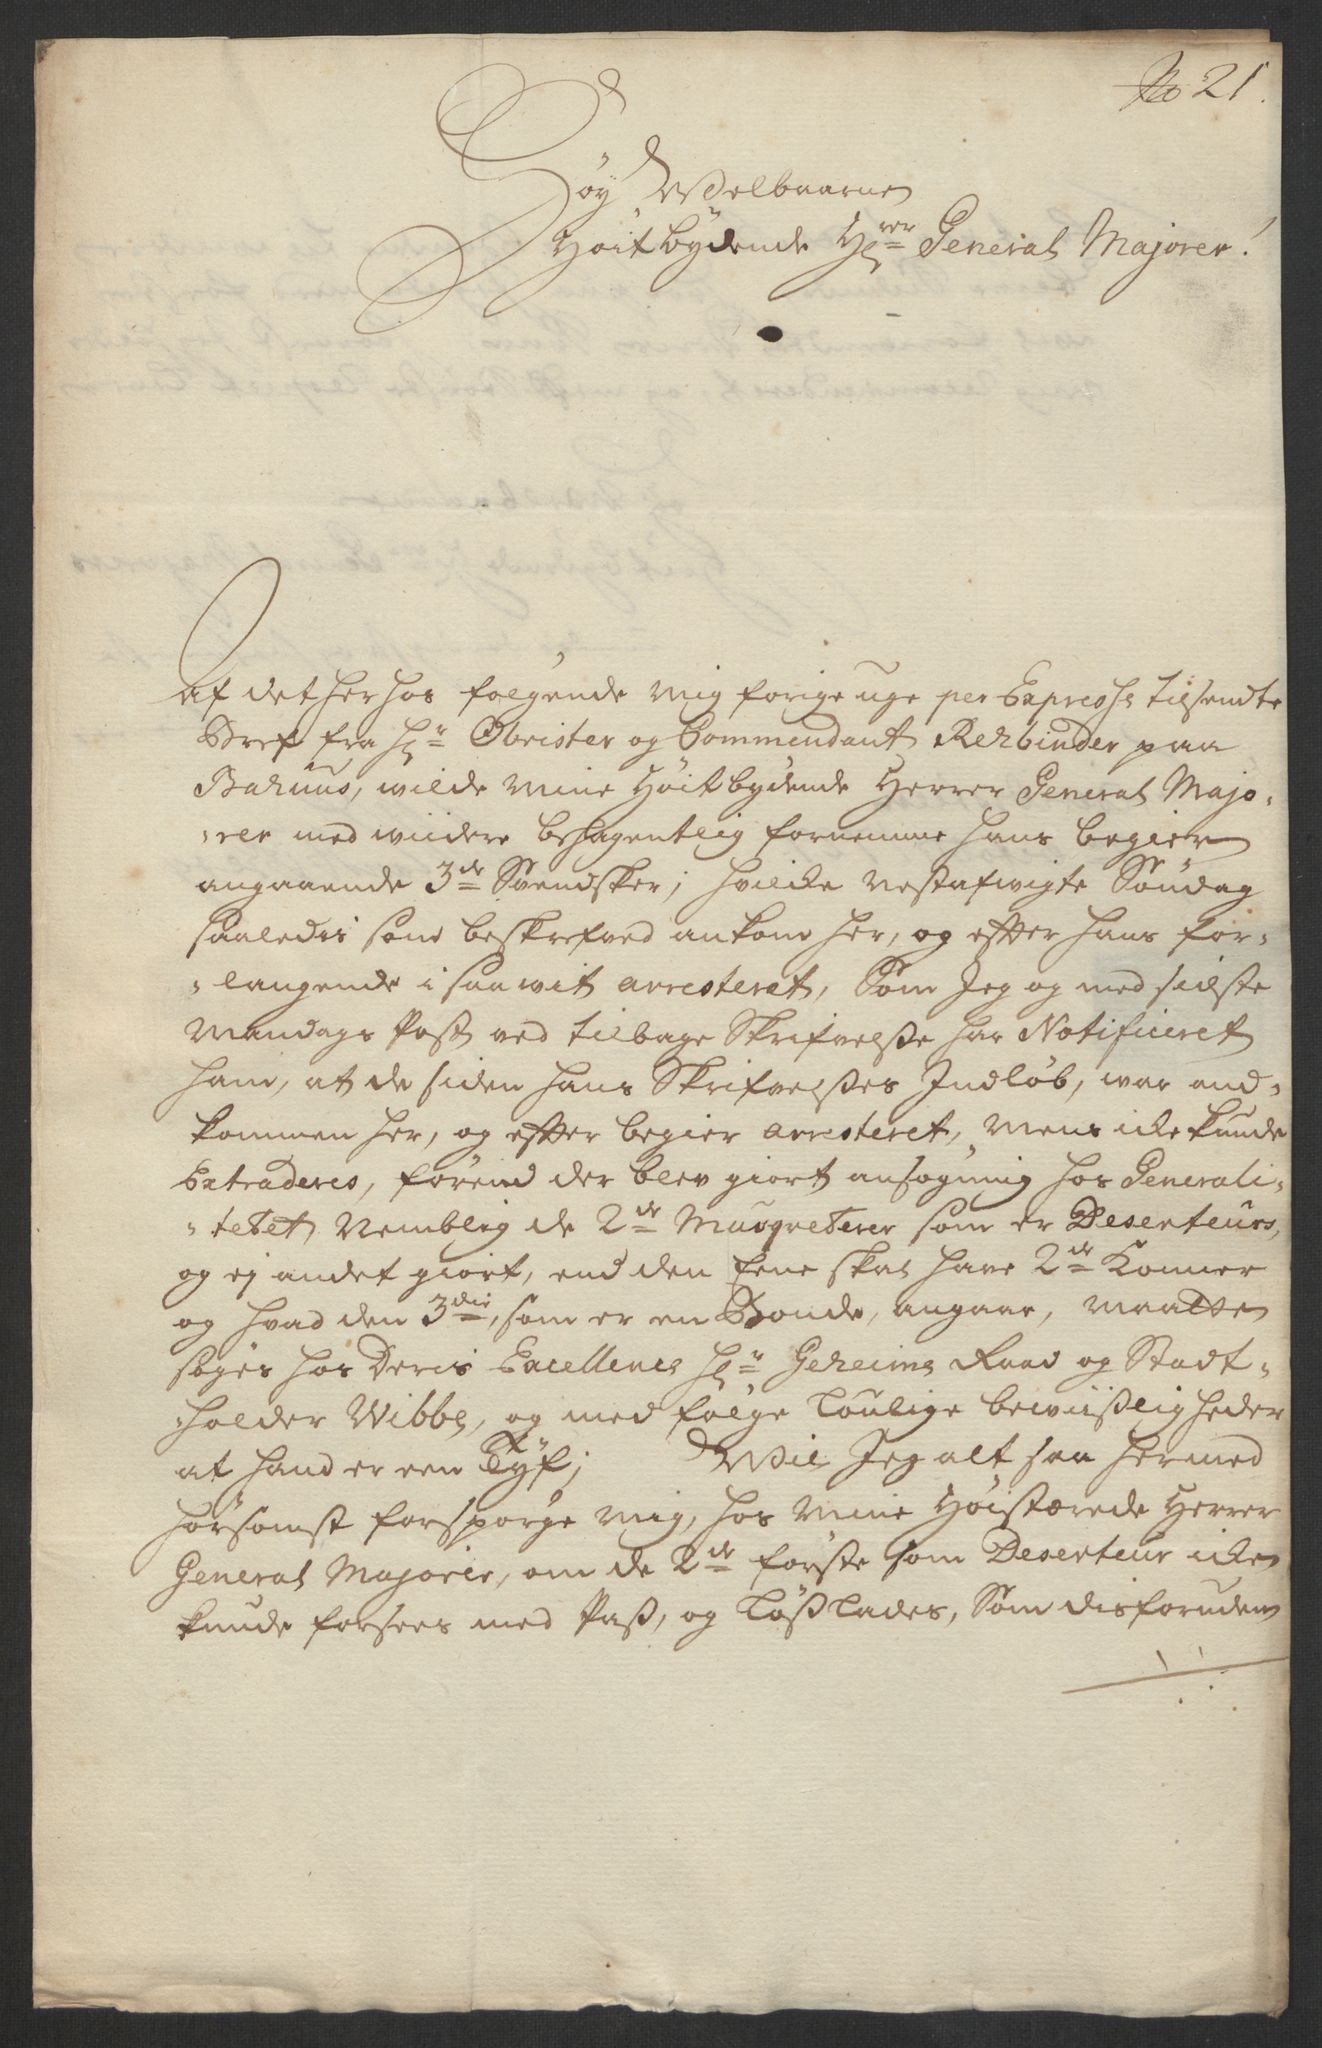 No 21.
Höy Welbaarne
Höitbydende Hrrer General Majorer!
Af det herhos folgende mig forige uge per Expresse tilsendte
Bref fra Hr Obrister og Commendant Rehbinder paa
Bahuus, wilde mine Höitbydende Herrer General Majo-
-rer med wiidere behagentlig fornemme hans begier
angaaende 3de Svendsker; hvilcke nestafwigte Söndag
saaledis som beskrefved ankom her, og efter hans for-
-langende i saa wit arresteret, Som Jeg og med sidste
Mandags Post ved tilbage Skrifvelsse har Notificeret
ham, at de siden hans Skrifvelsses Indlöb, war and-
kommen her, og efter begier arresteret, mens icke kunde
Extraderes, förend der blev giort ansögning hos Generali-
-tetet, nemblig de 2de Musqveterer som er Deserteurs,
og ej andet giort, end den Eene skal have 2de Konner
og hvad den 3die, som er en Bonde, angaar, maatte
söges hos Deris Excellence Hr Geheime Raad og Stadt-
-holder Wibbe, og med fölge loulige bewiisligheder
at hand er een Tyf; Wil Jeg alt saa hermed
hörsomst forspörge mig, hos mine Höistærede Herrer
General Majorer, om de 2de förste som Deserteur icke
kunde forsees med Pass, og lösslades, Som disforuden